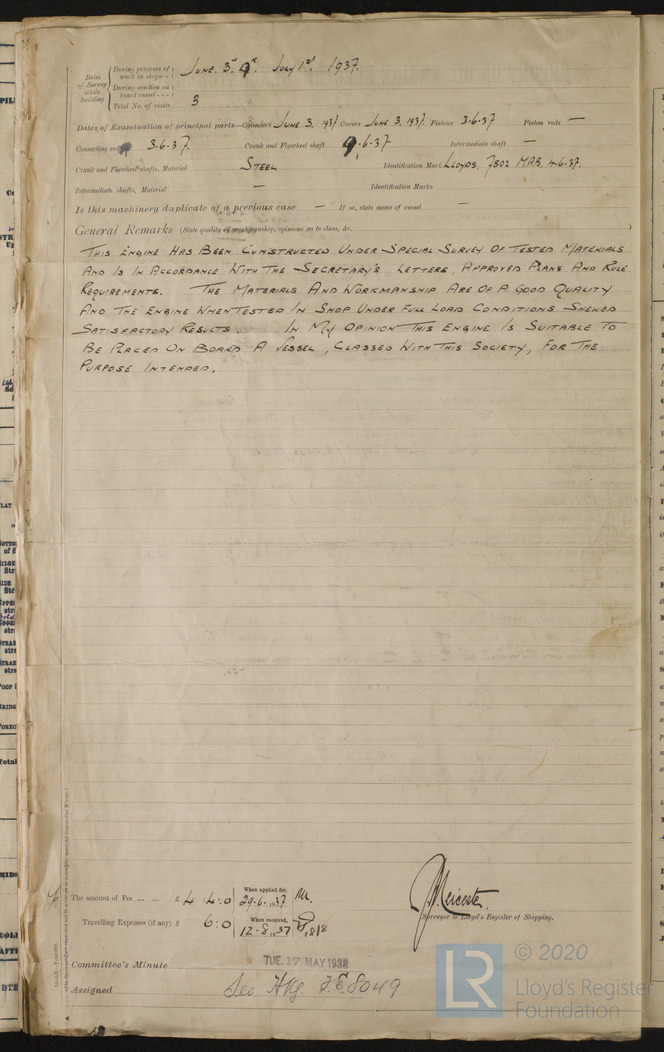 Dates of Survey while building
During progress of work in shops - - June. 3rd 9th. July 1st 1937.
During erection on board vessel - - -
Total No. of visits 3
Dates of Examination of principal parts—Cylinders June 3. 1937 Covers June 3. 1937. Pistons 3.6.37 Piston rods —
Connecting rods 3.6.37. Crank and Flywheel shaft 9.6.37 Intermediate shaft —
Crank and Flywheel shafts, Material Steel Identification Mark Lloyds, 7802 4.6.37.
Intermediate shafts, Material — Identification Marks
Is this machinery duplicate of a previous case — If so, state name of vessel —
General Remarks (State quality of workmanship, opinions as to class, &c.
This Engine Has Been Constructed Under Special Survey Of Tested Materials
And Is In Accordance With The Secretary's Letters, Approved Plans And Rule
Requirements. The Materials And Workmanship Are Of A Good Quality
And The Engine When Tested In Shop Under Full Load Conditions Shewed
Satisfactory Results. In My Opinion This Engine Is Suitable To
Be Placed On Board A Vessel, Classed With This Society, For The
Purpose Intended.
The amount of Fee ... ... £ 4 : 4 : 0 When applied for, 29.6.1937
Travelling Expenses (if any) £ 6 : 0 When received, 12.8.1937
Leicester.
Surveyor to Lloyd's Register of Shipping.
Committee's Minute TUE. 17 MAY 1938
Assigned See Hkg. F.E. 8049
© 2020
LR Lloyd's Register
Foundation